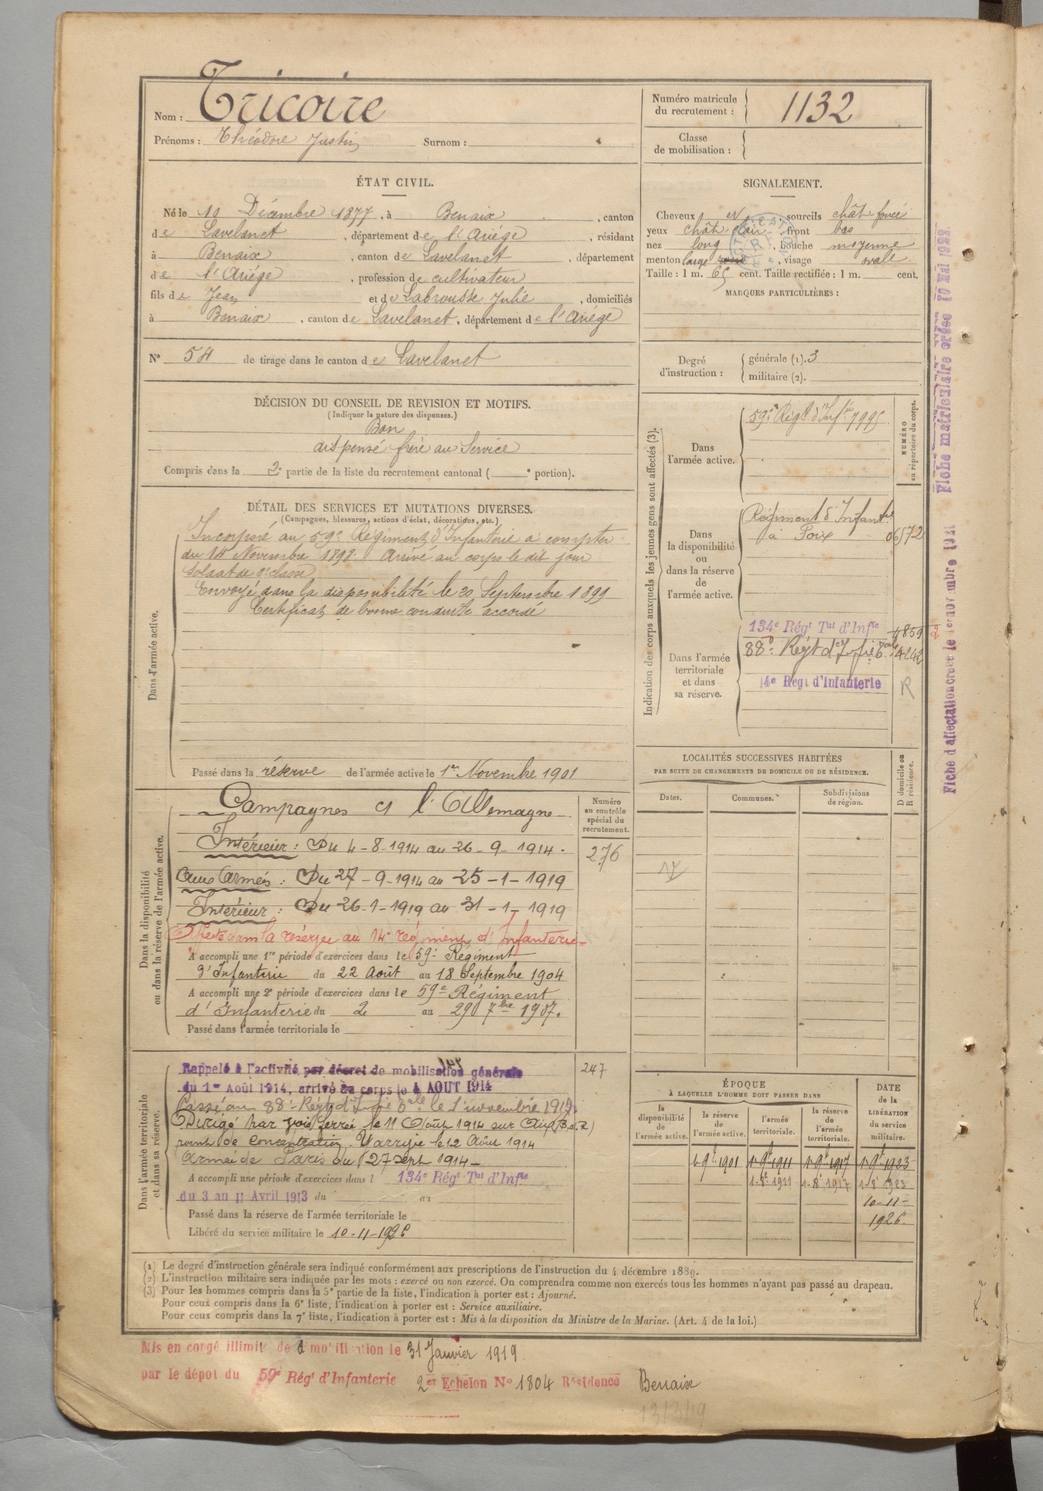 Nom : Tricoire
Prénoms : Théodore Justin Surnom :
Numéro matricule du recrutement : 1132
Classe de mobilisation :
ÉTAT CIVIL.
Né le 10 Décembre 1877, à Benaix, canton
de Lavelanet, département de l'Ariége, résidant
à Benaix, canton de Lavelanet, département
de l'Ariége, profession de cultivateur
fils de Jean et de Labrousse Julie, domiciliés
à Benaix, canton de Lavelanet, département de l'Ariége
N° 54 de tirage dans le canton de Lavelanet
SIGNALEMENT.
Cheveux et sourcils chât foncé
yeux chât clair front bas
nez long, bouche moyenne
menton large, visage ovale
Taille : 1 m. 65 cent. Taille rectifiée : 1 m. cent.
MARQUES PARTICULIÈRES :
Degré d'instruction : générale (1). 3
militaire (2).
DÉCISION DU CONSEIL DE REVISION ET MOTIFS.
(Indiquer la nature des dispenses.)
Bon
dispensé frère au Service
Compris dans la 2e partie de la liste du recrutement cantonal ( e portion).
DÉTAIL DES SERVICES ET MUTATIONS DIVERSES.
(Campagnes, blessures, actions d'éclat, décorations, etc.)
Dans l'armée active.
Incorporé au 59e Régiment d'Infanterie à compter
du 14 Novembre 1898. Arrivé au corps le dit jour
Soldat de 2e classe
Envoyé dans la disponibilité le 20 Septembre 1899
Certificat de bonne conduite accordé
Passé dans la réserve de l'armée active le 1er Novembre 1901
Indication des corps auxquels les jeunes gens sont affectés (3).
NUMÉRO au répertoire du corps.
Dans l'armée active.
59e Régt d'Infrie 7995
Dans la disponibilité ou dans la réserve de l'armée active.
Régiment d'Infantie
à Foix 06572
Dans l'armée territoriale et dans sa réserve.
134e Régt Tal d'Infie 4859
88e Régt d'Infie 4242
14e Régt d'Infanterie R
Fiche matriculaire créée 10 Mai 1922.
Fiche d'affectation créée le
LOCALITÉS SUCCESSIVES HABITÉES
PAR SUITE DE CHANGEMENTS DE DOMICILE OU DE RÉSIDENCE.
Dates. Communes. Subdivisions de région. D domicile ou R résidence.
Dans la disponibilité ou dans la réserve de l'armée active.
Numéro au contrôle spécial du recrutement.
276
Campagnes ct l'Allemagne
Intérieur : Du 4-8-1914 au 26-9-1914.
Aux Armées : Du 27-9-1914 au 25-1-1919
Intérieur : Du 26-1-1919 au 31-1-1919
Affecté dans la réserve au 14e régiment d'Infanterie
A accompli une 1re période d'exercices dans le 59e Régiment
d'Infanterie du 22 Août au 18 Septembre 1904
A accompli une 2e période d'exercices dans le 59e Régiment
d'Infanterie du 2 au 29 7bre 1907.
Passé dans l'armée territoriale le
Dans l'armée territoriale et dans sa réserve.
247
Rappelé à l'activité par décret de mobilisation générale
du 1er Août 1914, arrivé au corps le 4 AOUT 1914
Passé au 88e Régt d'Infie le 1 novembre 1914
Dirigé par voie ferrée le 11 Août 1914 sur
point de concentration. Y arrive le 12 Août 1914
Armée de Paris du 27 Sept 1914
A accompli une période d'exercices dans l 134e Régt Tal d'Infie
du 3 au 11 Avril 1913 du au
Passé dans la réserve de l'armée territoriale le
Libéré du service militaire le 10-11-1926
ÉPOQUE
À LAQUELLE L'HOMME DOIT PASSER DANS
DATE DE LA LIBÉRATION DU SERVICE militaire.
la disponibilité de l'armée active. la réserve de l'armée active. l'armée territoriale. la réserve de l'armée territoriale.
1-9bre 1901 1-9bre 1911 1-9bre 1917 1-9bre 1923
1-8e 1921 1-8e 1927
10-11-
1926
(1) Le degré d'instruction générale sera indiqué conformément aux prescriptions de l'instruction du 4 décembre 1889.
(2) L'instruction militaire sera indiquée par les mots : exercé ou non exercé. On comprendra comme non exercés tous les hommes n'ayant pas passé au drapeau.
(3) Pour les hommes compris dans la 5e partie de la liste, l'indication à porter est : Ajourné.
Pour ceux compris dans la 6e liste, l'indication à porter est : Service auxiliaire.
Pour ceux compris dans la 7e liste, l'indication à porter est : Mis à la disposition du Ministre de la Marine. (Art. 4 de la loi.)
Mis en congé illimité de démobilisation le 31 Janvier 1919
par le dépot du 59e Régt d'Infanterie 2er Echelon No 1804 Résidence Benaix